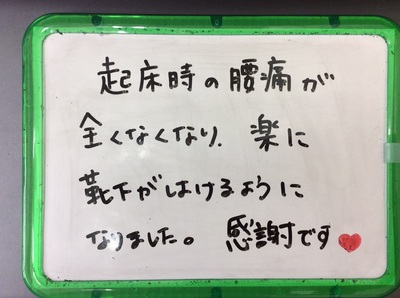 起床時の腰痛が
全くなくなり、楽に
靴下がはけるように
なりました。 感謝です❤